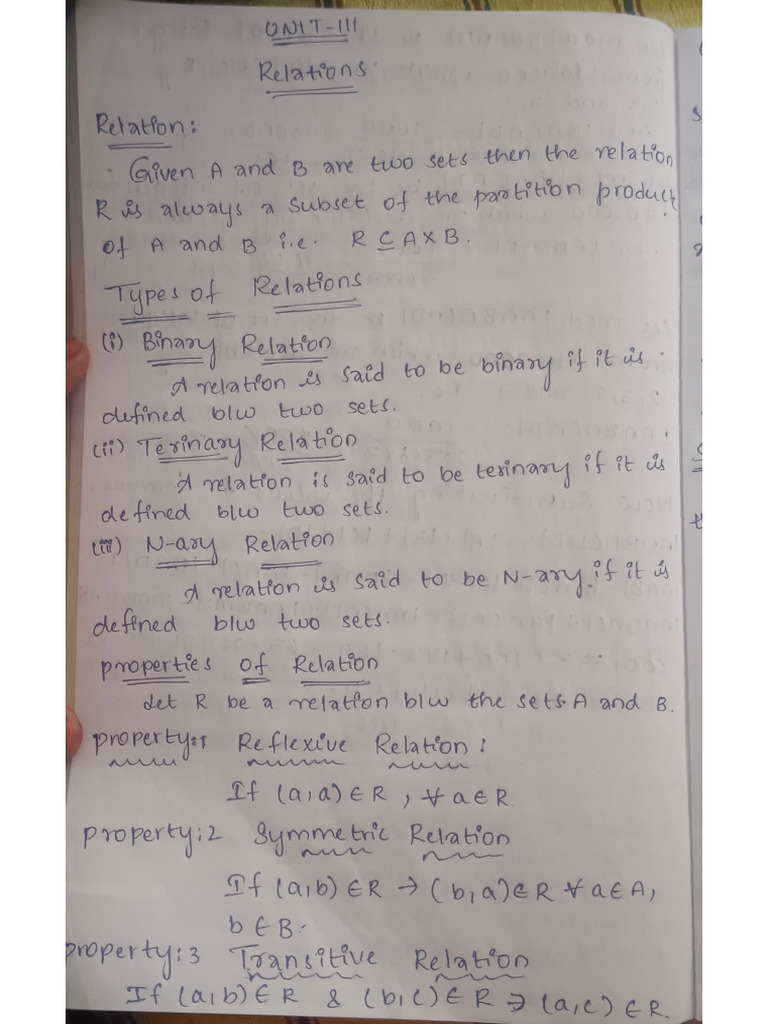 UNIT-III
Relations
Relation:
Given A and B are two sets then the relation
R is always a subset of the partition product
of A and B i.e. R ⊆ A x B.
Types of Relations
(i) Binary Relation
A relation is said to be binary if it is
defined b/w two sets.
(ii) Terinary Relation
A relation is said to be terinary if it is
defined b/w two sets.
(iii) N-ary Relation
A relation is said to be N-ary if it is
defined b/w two sets.
properties of Relation
Let R be a relation b/w the sets A and B.
property:1 Reflexive Relation:
If (a,a) ∈ R, ∀ a ∈ R
property:2 Symmetric Relation
If (a,b) ∈ R → (b,a) ∈ R ∀ a ∈ A,
b ∈ B.
property:3 Transitive Relation
If (a,b) ∈ R & (b,c) ∈ R ⇒ (a,c) ∈ R.